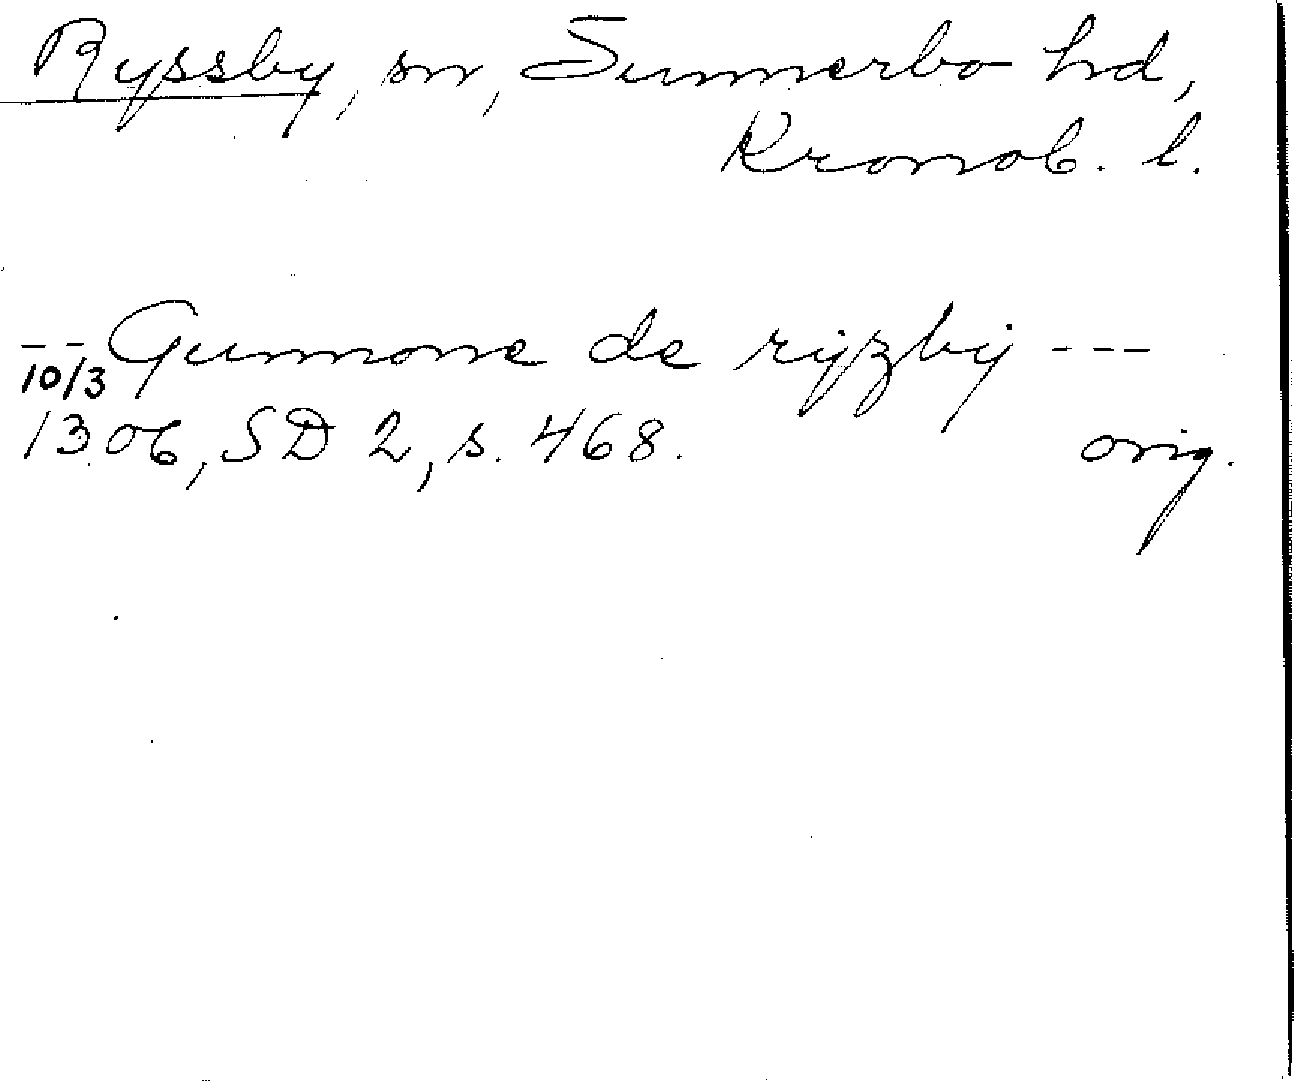 Ryssby, sn, Sunnerbo hd,
Kronob. l.
-- Gunnone de rÿzbÿ ---
10/3
1306, SD 2, s. 468. orig.